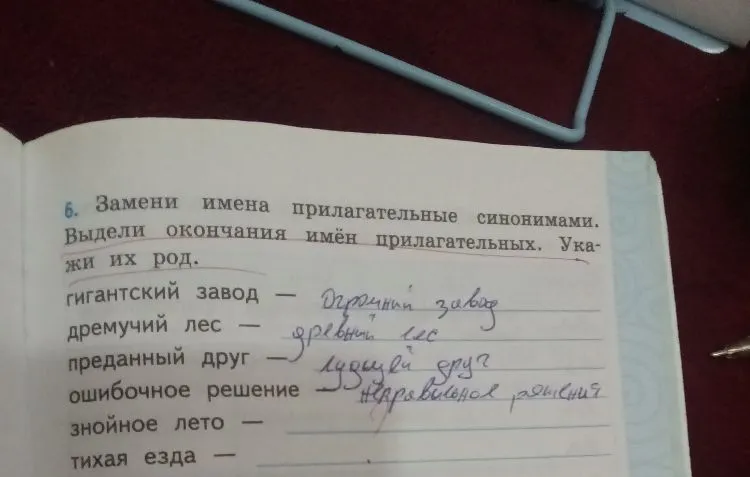 6. Замени имена прилагательные синонимами.
Выдели окончания имён прилагательных. Ука-
жи их род.
гигантский завод — Огромний завод
дремучий лес — древний лес
преданный друг — лудщей друг
ошибочное решение — неправильное решения
знойное лето —
тихая езда —